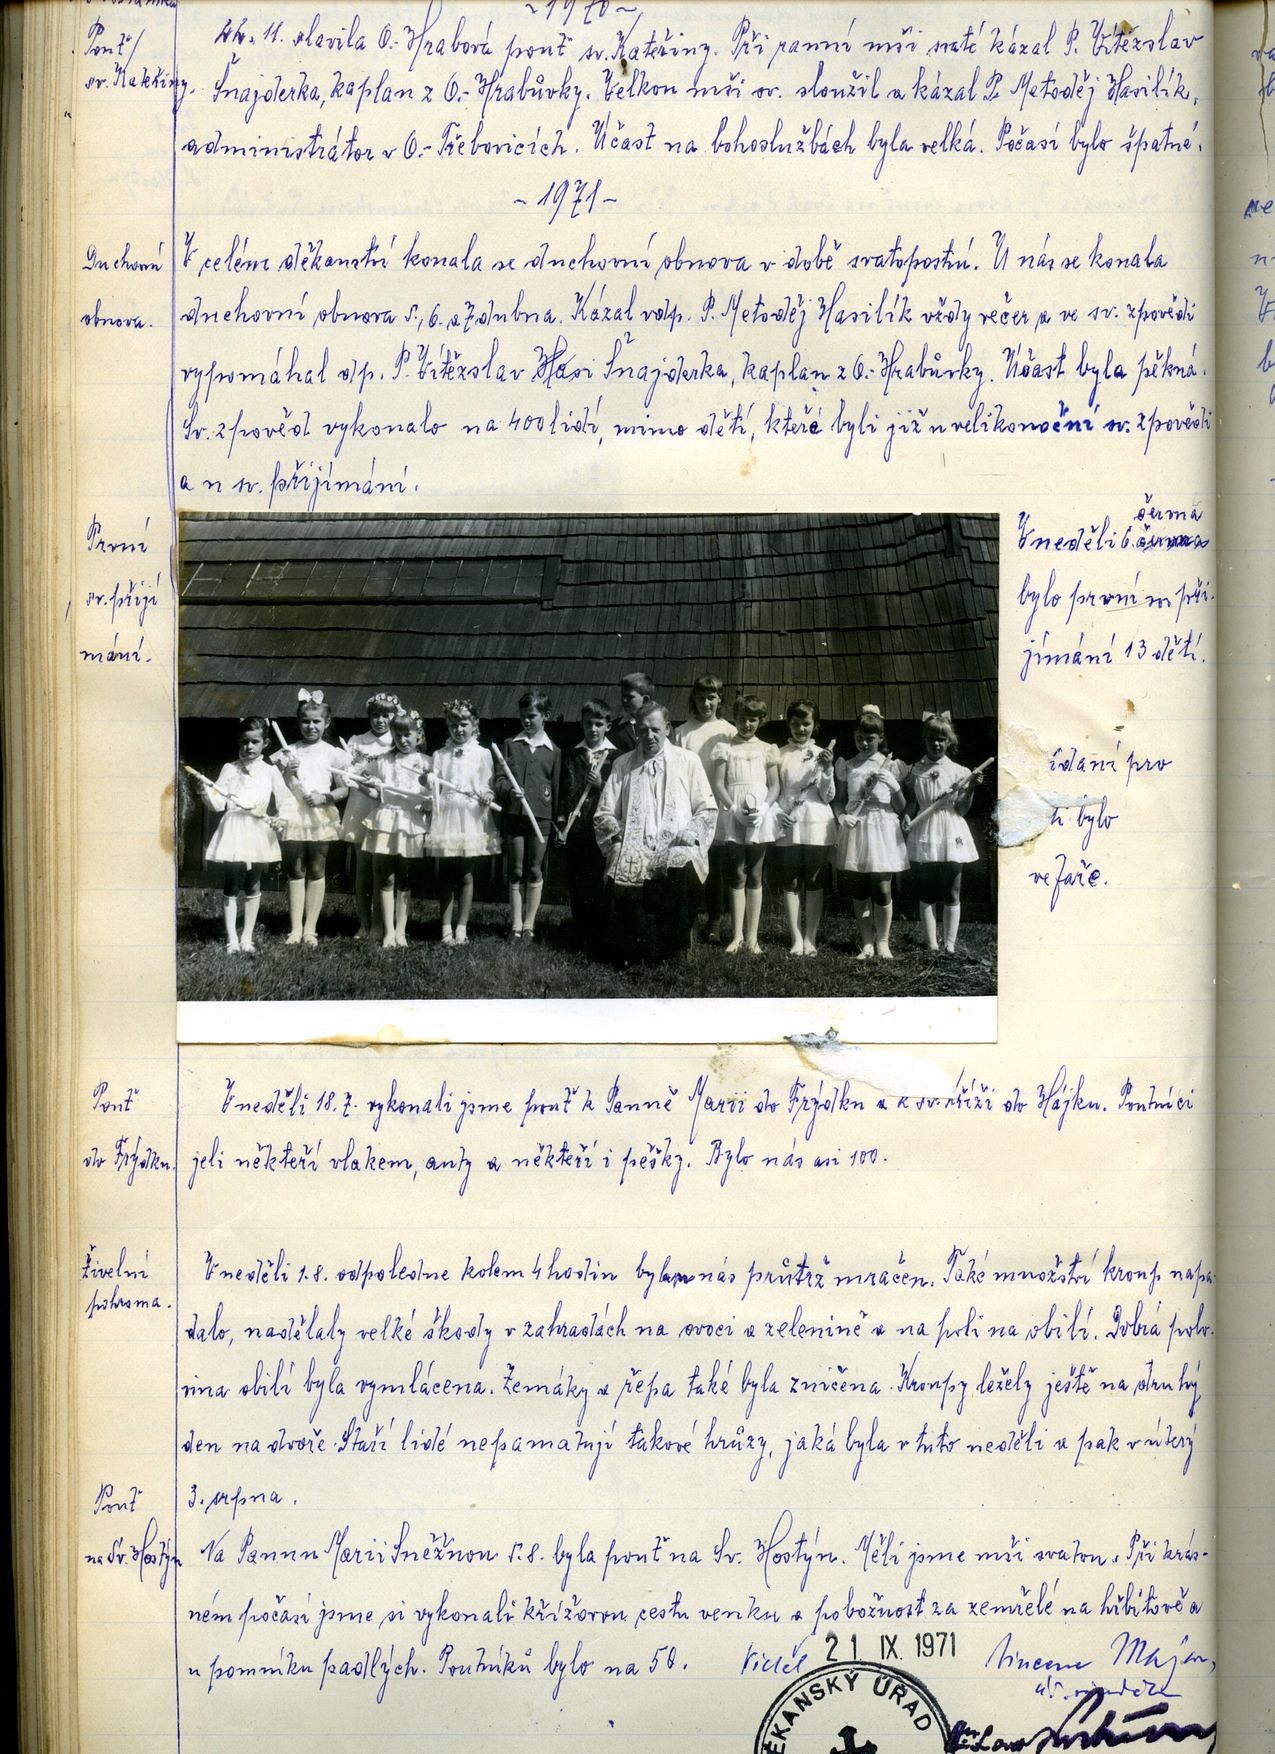 - 1970 -
Pouť
sv. Kateřiny.
22. 11. slavila O.-Hrabová pouť sv. Kateřiny. Při ranní mši svaté kázal P. Vítězslav
Šnajderka, kaplan z O.-Hrabůvky. Velkou mši sv. sloužil a kázal P. Metoděj Hasilík,
administrátor v O.-Třebovicích. Účast na bohoslužbách byla velká. Počasí bylo špatné.
- 1971 -
Duchovní
obnova.
V celém děkanství konala se duchovní obnova v době svatopostní. U nás se konala
duchovní obnova 5., 6. a 7. dubna. Kázal vdp. P. Metoděj Hasilík vždy večer a ve sv. zpovědi
vypomáhal dp. P. Vítězslav Hasi Šnajderka, kaplan z O.-Hrabůvky. Účast byla pěkná.
Sv. zpověd vykonalo na 400 lidí, mimo dětí, které byli již u velikonoční sv. zpovědi
a u sv. přijímání.
První
sv. přijí
mání.
V neděli 6. června
bylo první sv. při-
jímání 13 dětí.
ídaní pro
ti bylo
ve faře.
Pouť
do Frýdku.
V neděli 18. 7. vykonali jsme pouť k Panně Marii do Frýdku a k sv. kříži do Hájku. Poutníci
jeli někteří vlakem, auty a někteří i pěšky. Bylo nás asi 100.
Živelní
pohroma.
V neděli 1. 8. odpoledne kolem 4 hodin byla u nás průtrž mračen. Také množství kroup napa-
dalo, nadělaly velké škody v zahradách na ovoci a zelenině a na poli na obilí. Dobrá polo-
vina obilí byla vymlácena. Zemáky a řepa také byla zničena. Kroupy ležely ještě na druhý
den na dvoře. Staří lidé nepamatují takové hrůzy, jaká byla v tuto neděli a pak v úterý
3. srpna.
Pouť
na Sv. Hostýn
Na Pannu Marii Sněžnou 5. 8. byla pouť na Sv. Hostýn. Měli jsme mši svatou. Při krás-
ném počasí jsme si vykonali křížovou cestu venku a pobožnost za zemřelé na hřbitově a
u pomníku padlých. Poutníků bylo na 50.
Viděl
21 IX. 1971
Vincenc Majer,
ĚKANSKÝ ÚŘAD